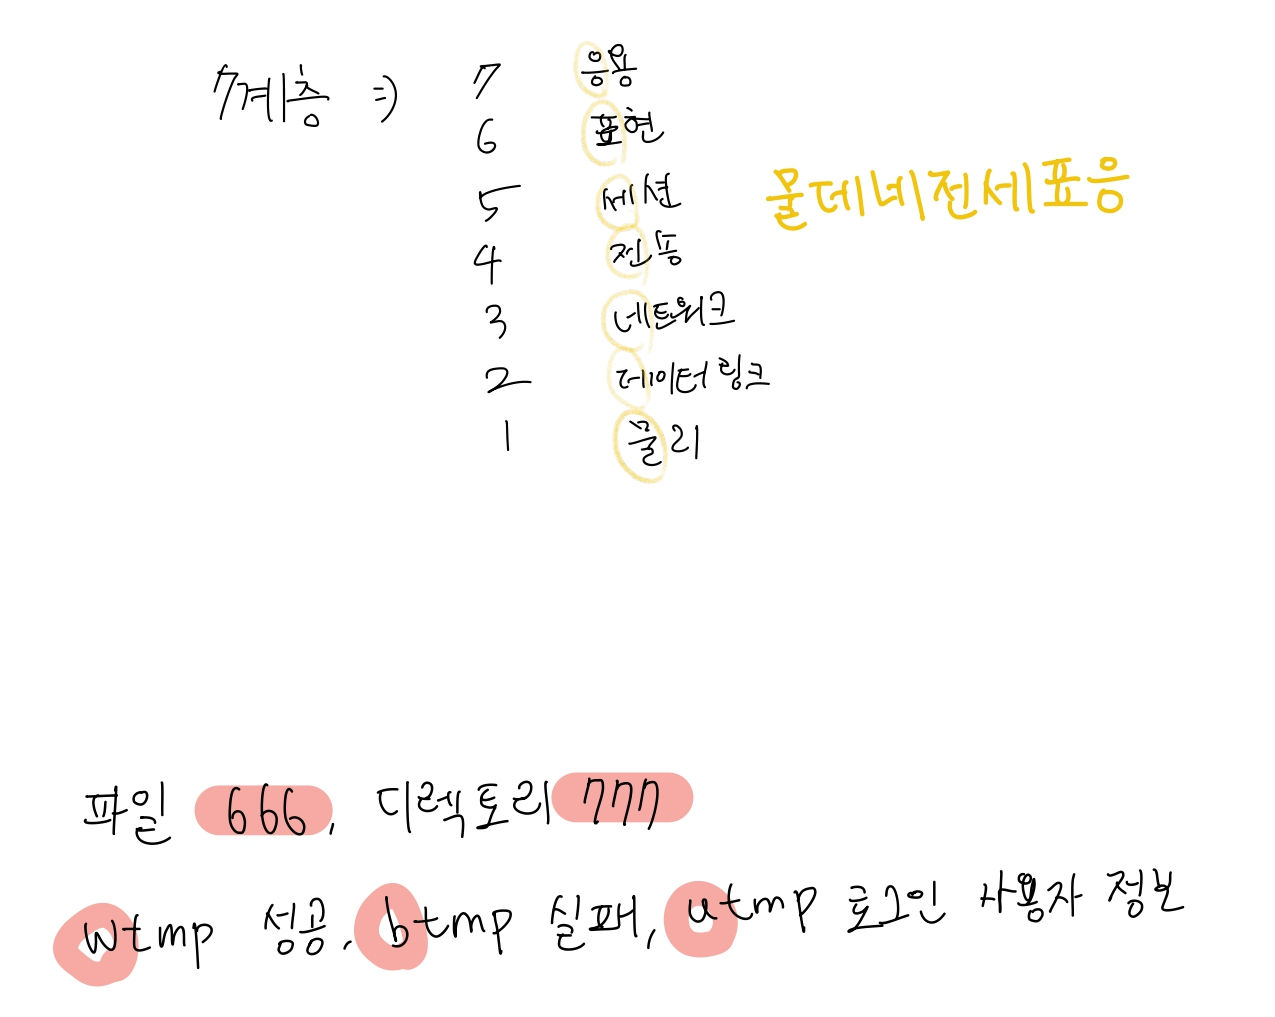 7계층 => 7 응용
6 표현
5 세션
물데네전세표응
4 전송
3 네트워크
2 데이터링크
1 물리
파일 666, 디렉토리 777
wtmp 성공, btmp 실패, utmp 로그인 사용자 정보